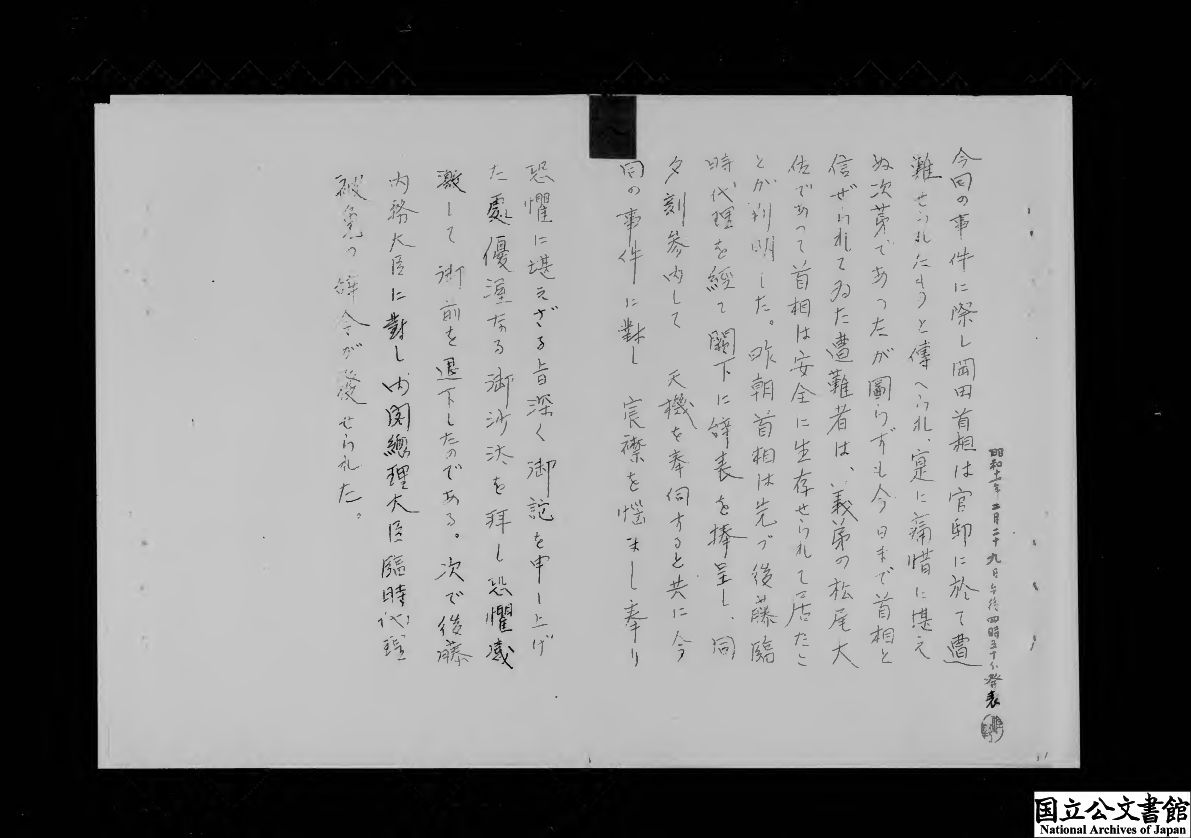 昭和十一年二月二十九日午後四時五十分発表
今回の事件に際し岡田首相は官邸に於て遭
難せられたもうと傳へられ、寔に痛惜に堪え
ぬ次第であつたが圖らずも今日まで首相と
信ぜられてゐた遭難者は、義弟の松尾大
佐であつて首相は安全に生存せられて居たこ
とが判明した。昨朝首相は先づ後藤臨
時代理を經て闕下に辞表を捧呈し、同
夕刻参内して 天機を奉伺すると共に今
回の事件に對し 宸襟を悩まし奉り
恐懼に堪えざる旨深く御詫を申し上げ
た處優渥なる御沙汰を拜し恐懼感
激して御前を退下したのである。次で後藤
内務大臣に對し内閣總理大臣臨時代理
被免の辞令が發せられた。
国立公文書館
National Archives of Japan